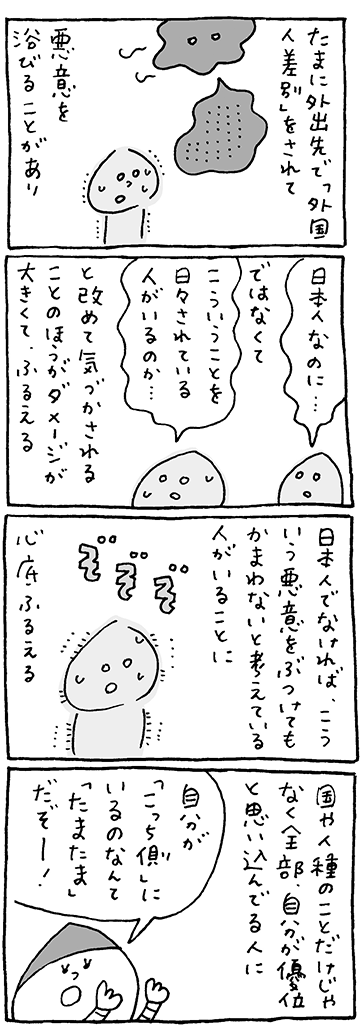 たまに外出先で「外国
人差別」をされて
悪意を
浴びることがあり
日本人なのに…
ではなくて
こういうことを
日々されている
人がいるのか…
と改めて気づかされる
ことのほうがダメージが
大きくて、ふるえる
日本人でなければ、こう
いう悪意をぶつけても
かまわないと考えている
人がいることに
ぞぞぞ
心底ふるえる
国や人種のことだけじゃ
なく全部、自分が優位
と思い込んでる人に
自分が
「こっち側」に
いるのなんて
「たまたま」
だぞー!